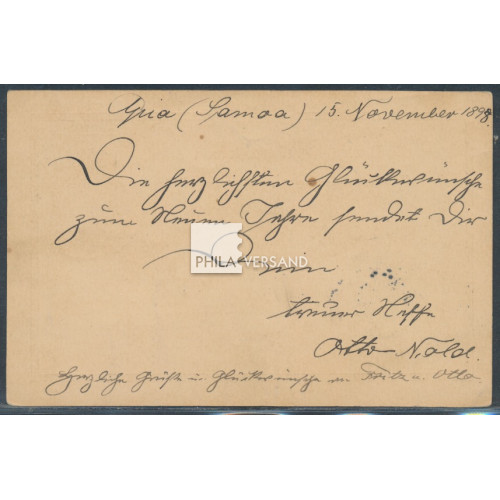 Apia (Samoa) 15. November 1898.
Die herzlichsten Glückwünsche
zum Neuen Jahre sendet Dir
PHILA VERSAND
Dein
treuer Neffe
Otto Nold.
Herzliche Grüße u. Glückwünsche an Fritz u. Otto.